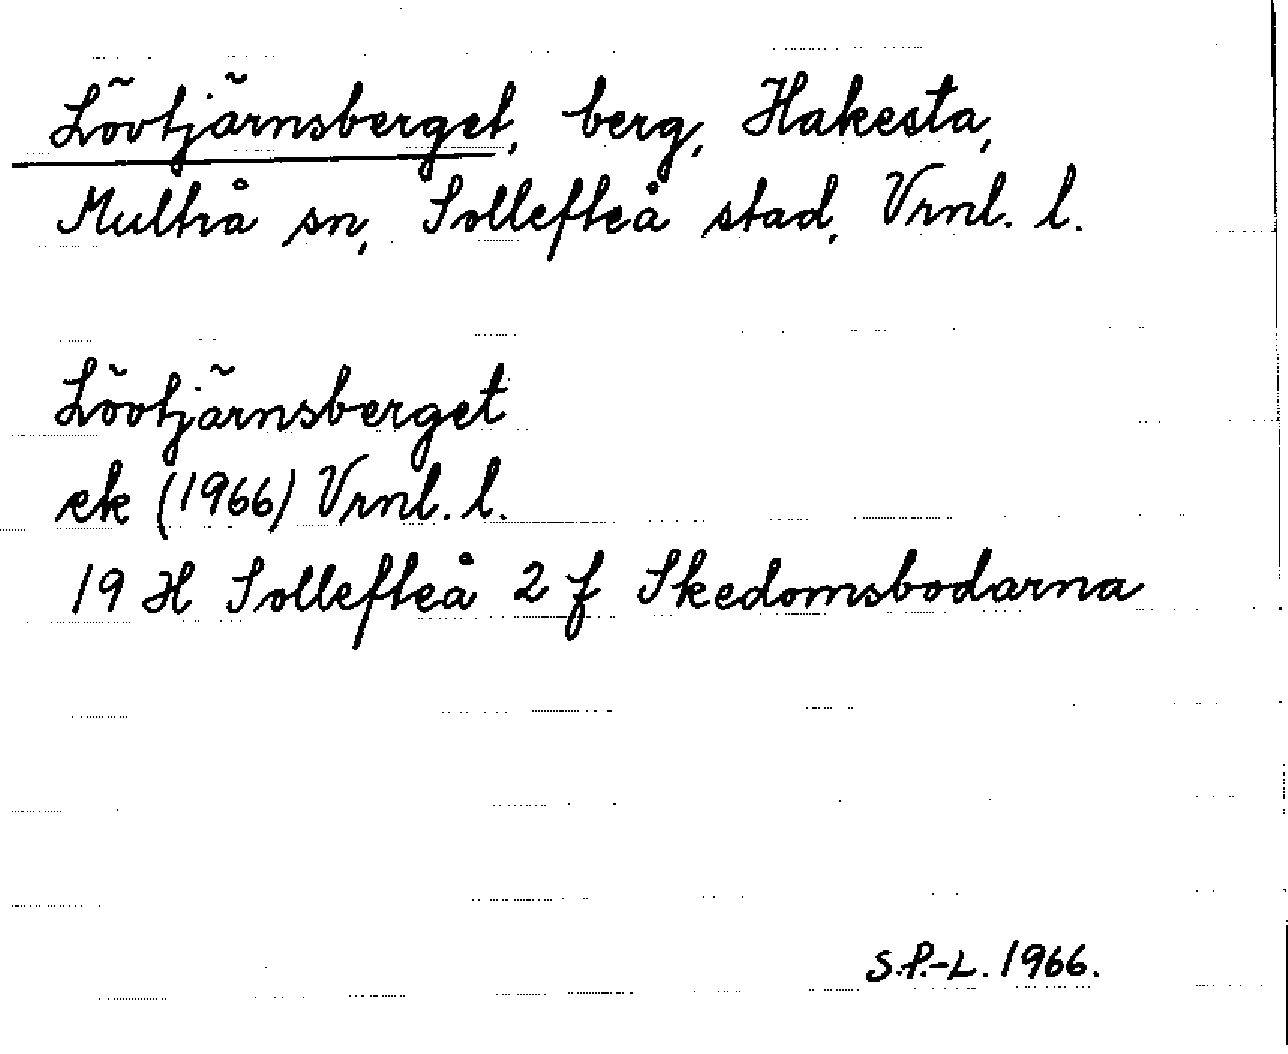 Lövtjärnsberget, berg, Hakesta,
Multrå sn, Sollefteå stad, Vrnl. l.
Lövtjärnsberget
ek (1966) Vrnl. l.
19 H Sollefteå 2 f Skedomsbodarna
S.P.-L. 1966.